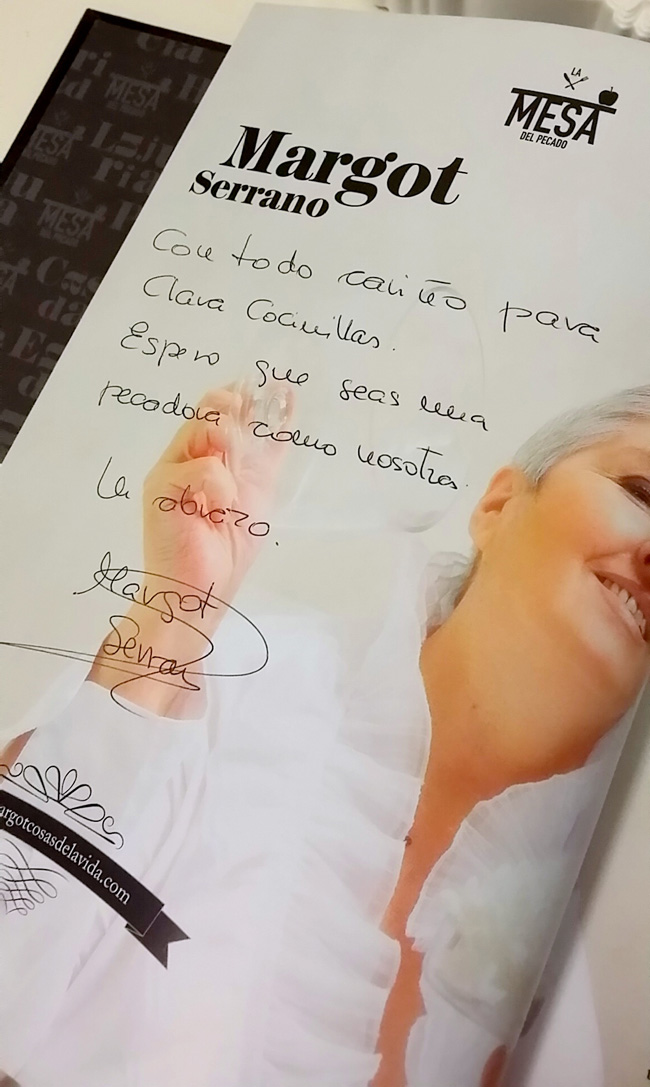 LA
MESA
DEL PECADO
Margot
Serrano
Con todo cariño para
Clara Cocinillas.
Espero que seas una
pecadora como nosotras.
Un abrazo.
Margot
Serrano
argotcosasdelavida.com